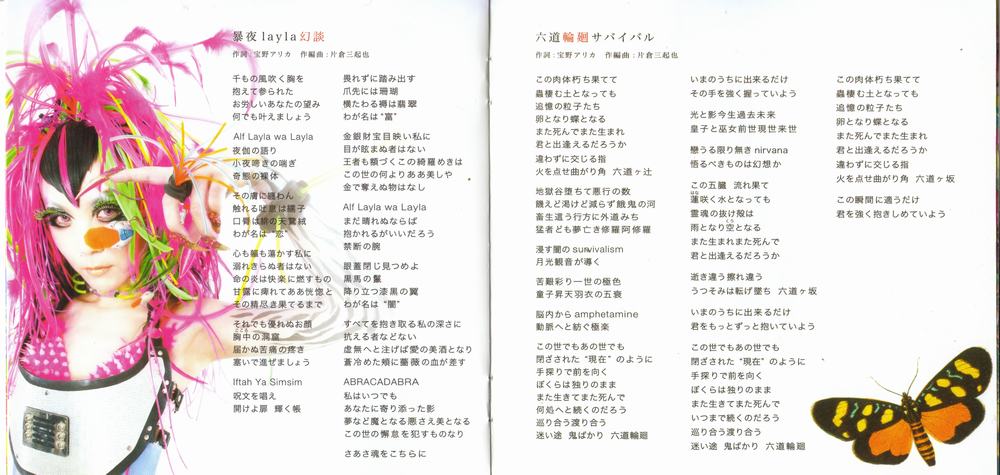 暴夜layla幻談
作詞：宝野アリカ　作編曲：片倉三起也
千もの風吹く胸を
抱えて参られた
お労しいあなたの望み
何でも叶えましょう
Alf Layla wa Layla
夜伽の語り
小夜啼きの喘ぎ
奇態の裸体
その膚に纏わん
触れる吐息は繻子
口脣は緋の天鵞絨
わが名は“恋”
心も軀も蕩かす私に
溺れきらぬ者はない
命の炎は快楽に燃すもの
甘露に痺れてああ恍惚と
その精尽き果てるまで
それでも優れぬお顔
胸中の洞窟
こころ
届かぬ苦痛の疼き
塞いで進ぜましょう
Iftah Ya Simsim
呪文を唱え
開けよ扉　輝く帳
畏れずに踏み出す
爪先には珊瑚
横たわる褥は翡翠
わが名は“富”
金銀財宝目映い私に
目が眩まぬ者はない
王者も額づくこの綺羅めきは
この世の何よりああ美しや
金で奪えぬ物はなし
Alf Layla wa Layla
まだ晴れぬならば
抱かれるがいいだろう
禁断の腕
眼蓋閉じ見つめよ
黒馬の鬣
降り立つ漆黒の翼
わが名は“闇”
すべてを抱き取る私の深さに
抗える者などない
虚無へと注げば愛の美酒となり
蒼冷めた頰に薔薇の血が差す
ABRACADABRA
私はいつでも
あなたに寄り添った影
夢など魔となる悪さえ美となる
この世の懈怠を犯すものなり
さあさ魂をこちらに
六道輪廻サバイバル
作詞：宝野アリカ　作編曲：片倉三起也
この肉体朽ち果てて
蟲棲む土となっても
追憶の粒子たち
卵となり蝶となる
また死んでまた生まれ
君と出逢えるだろうか
違わずに交じる指
火を点せ曲がり角　六道ヶ辻
地獄堕ちて悪行の数
餓えど渇けど減らず餓鬼の河
畜生遣う行方に外道みち
猛者ども夢亡き修羅阿修羅
浸す闇のsurvivalism
月光観音が導く
苦艱彩り一世の極色
童子昇天羽衣の五衰
脳内からamphetamine
動脈へと紡ぐ極楽
この世でもあの世でも
閉ざされた“現在”のように
手探りで前を向く
ぼくらは独りのまま
また生きてまた死んで
何処へと続くのだろう
巡り合う渡り合う
迷い途　鬼ばかり　六道輪廻
いまのうちに出来るだけ
その手を強く握っていよう
光と影今生過去未来
皇子と巫女前世現世来世
戀うる限り無きnirvana
悟るべきものは幻想か
この五臓　流れ果て
蓮咲く水となっても
はな
霊魂の抜け殻は
雨となり空となる
くう
また生まれまた死んで
君と出逢えるだろうか
逝き違う擦れ違う
うつそみは転げ墜ち　六道ヶ坂
いまのうちに出来るだけ
君をもっとずっと抱いていよう
この世でもあの世でも
閉ざされた“現在”のように
手探りで前を向く
ぼくらは独りのまま
また生きてまた死んで
いつまで続くのだろう
巡り合う渡り合う
迷い途　鬼ばかり　六道輪廻
この肉体朽ち果てて
蟲棲む土となっても
追憶の粒子たち
卵となり蝶となる
また死んでまた生まれ
君と出逢えるだろうか
違わずに交じる指
火を点せ曲がり角　六道ヶ坂
この瞬間に適うだけ
君を強く抱きしめていよう